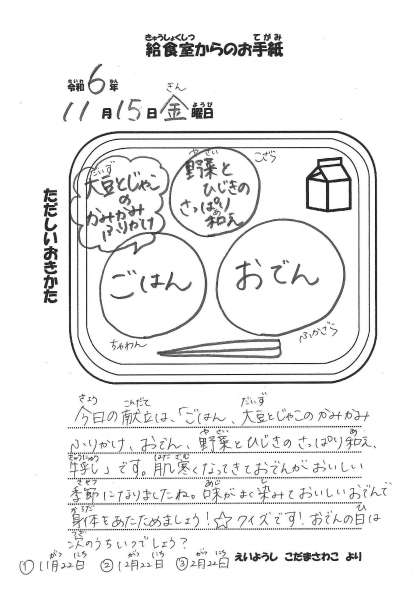 給食室からのお手紙
令和6年
11月15日金曜日
ただしいおきかた
大豆とじゃこ
の
かみかみ
ふりかけ
野菜と
ひじきの
さっぱり
和え
こざら
ごはん
おでん
ちゃわん
ふかざら
今日の献立は、「ごはん、大豆とじゃこのかみかみ
ふりかけ、おでん、野菜とひじきのさっぱり和え、
牛乳」です。肌寒くなってきておでんがおいしい
季節になりましたね。味がよく染みておいしいおでんで
身体をあたためましょう!☆クイズです!おでんの日は
次のうちいつでしょう?
①11月22日 ②12月22日 ③2月22日
えいようし こだまさわこ より